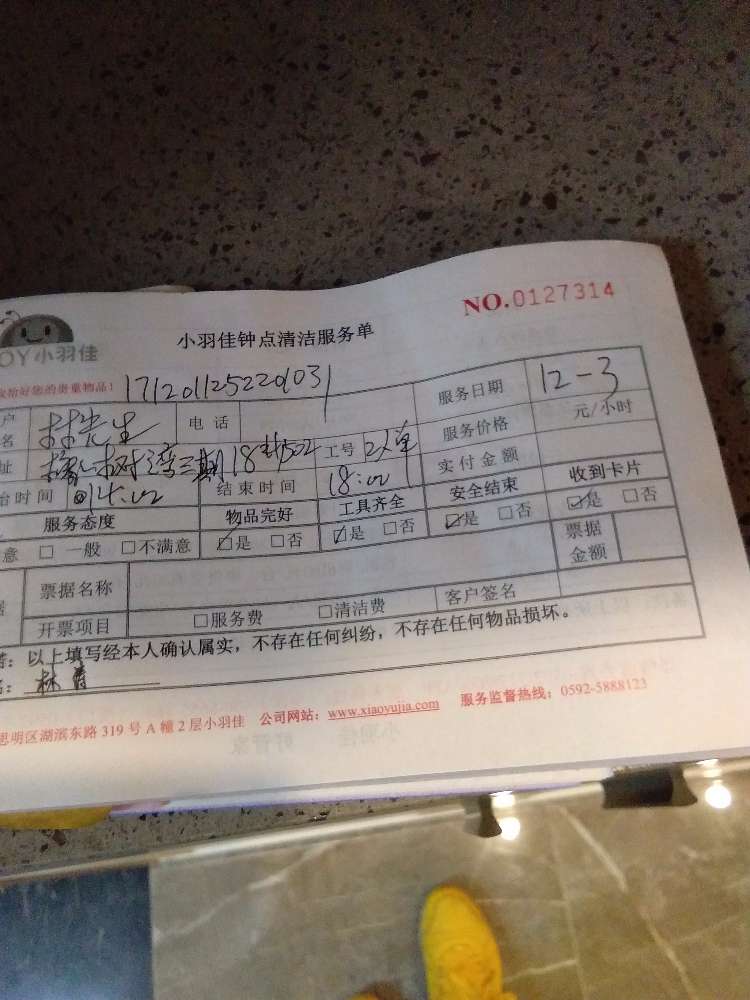 NO.0127314
OY小羽佳
小羽佳钟点清洁服务单
给好您的贵重物品! 171201125220103
户名 林先生 电话 服务日期 12-3
址 树湾三期18 502 工号 2人单 服务价格 元/小时
始时间 14:00 结束时间 18:00 实付金额
服务态度 物品完好 工具齐全 安全结束 收到卡片
意 □ 一般 □不满意 ☑是 □否 ☑是 □否 ☑是 □否 ☑是 □否
票据名称 票据金额
开票项目 □服务费 □清洁费 客户签名
：以上填写经本人确认属实，不存在任何纠纷，不存在任何物品损坏。
名：林青
思明区湖滨东路 319 号 A 幢 2 层小羽佳 公司网站：www.xiaoyujia.com 服务监督热线：0592-5888123